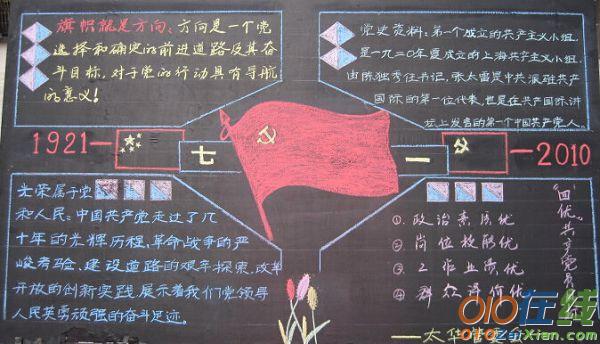 旗帜就是方向：方向是一个党
选择和确定的前进道路及其奋
斗目标，对于党的行动具有导航
的意义！
党史资料：第一个成立的共产主义小组，
是一九二〇年夏成立的上海共产主义小组，
由陈独秀任书记，张太雷是中共派驻共产
国际的第一位代表，也是在共产国际讲
坛上发言的第一个中国共产党人。
1921—
七
一
—2010
光荣属于党
和人民：中国共产党走过了几
十年的光辉历程，革命战争的严
峻考验、建设道路的艰辛探索，改革
开放的创新实践，展示着我们党领导
人民英勇顽强的奋斗足迹。
"四优"共产党员
①、政治素质优
②、岗位技能优
③、工作业绩优
④、群众评价优
——太华
010在线
010ZaiXian.com